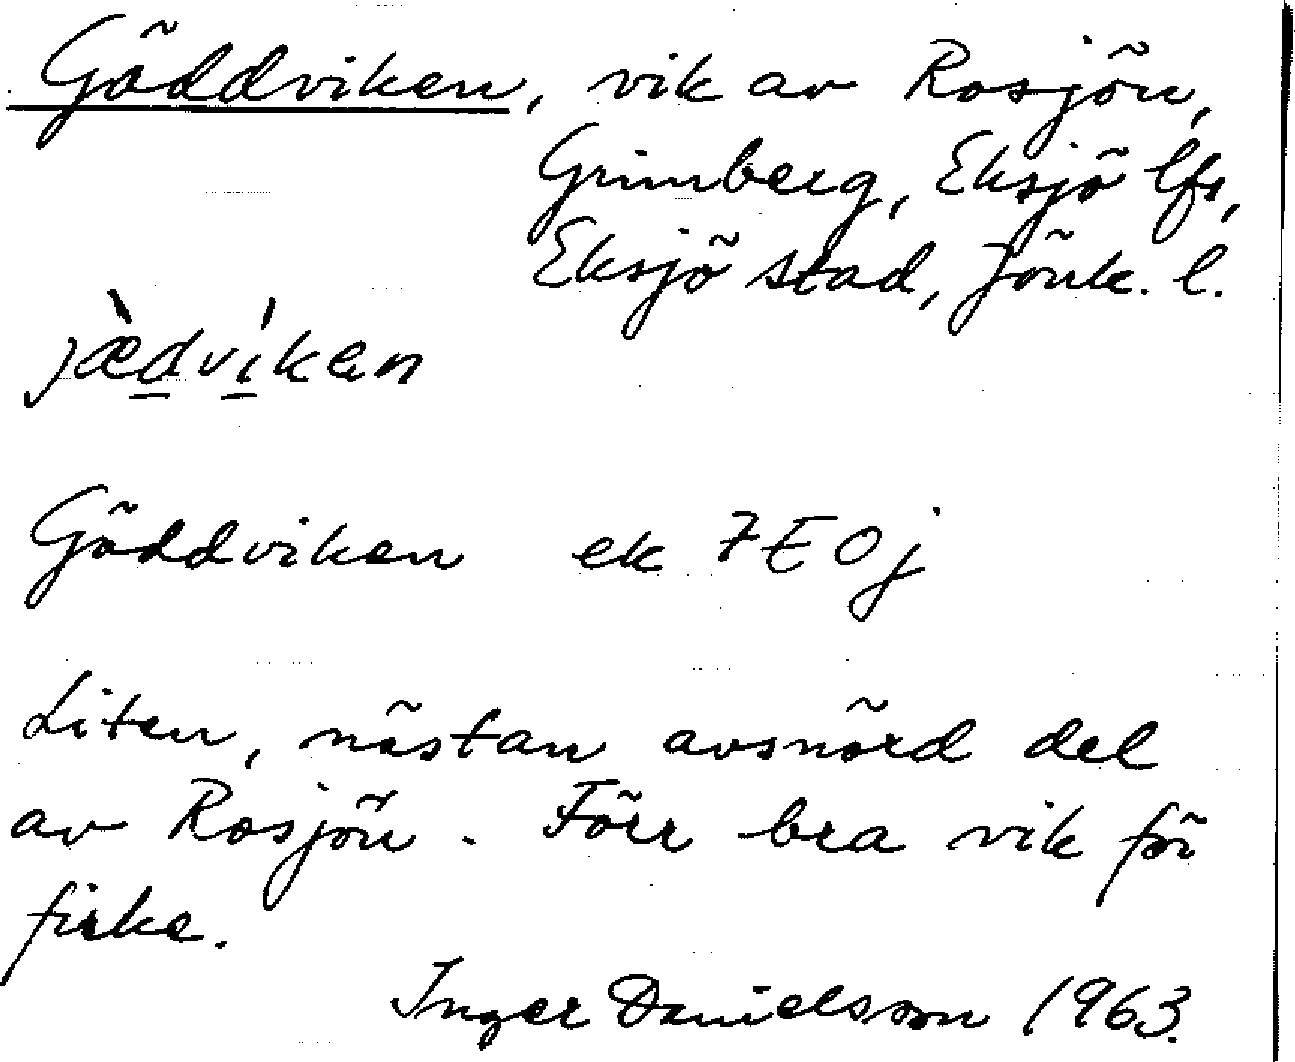 Gäddviken, vik av Rosjön,
Grimberg, Eksjö lfs,
Eksjö stad, Jönk. l.
jæ̀dvíken
Gäddviken ek 7E0j
Liten, nästan avsnörd del
av Rosjön. Förr bra vik för
fiske.
Inger Danielsson 1963.